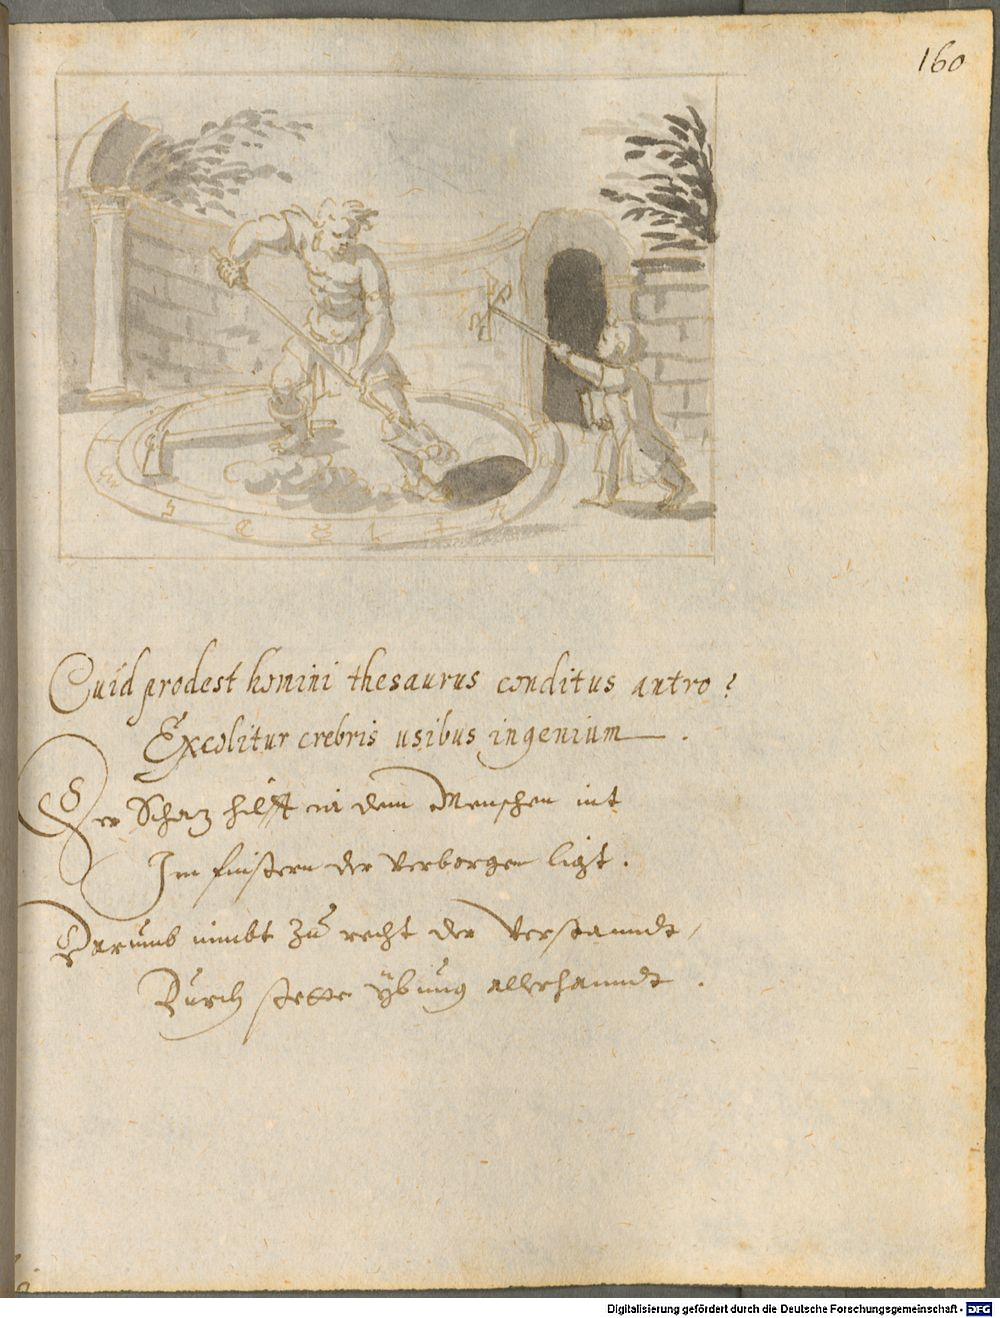 160
Quid prodest homini thesaurus conditus antro?
Excolitur crebris usibus ingenium.
Der Schaz hilfft ia dem Menschen nit
Im finstern der verborgen ligt.
Darumb nimbt zu recht der verstanndt,
Durch stette übung allerhanndt.
Digitalisierung gefördert durch die Deutsche Forschungsgemeinschaft - DFG